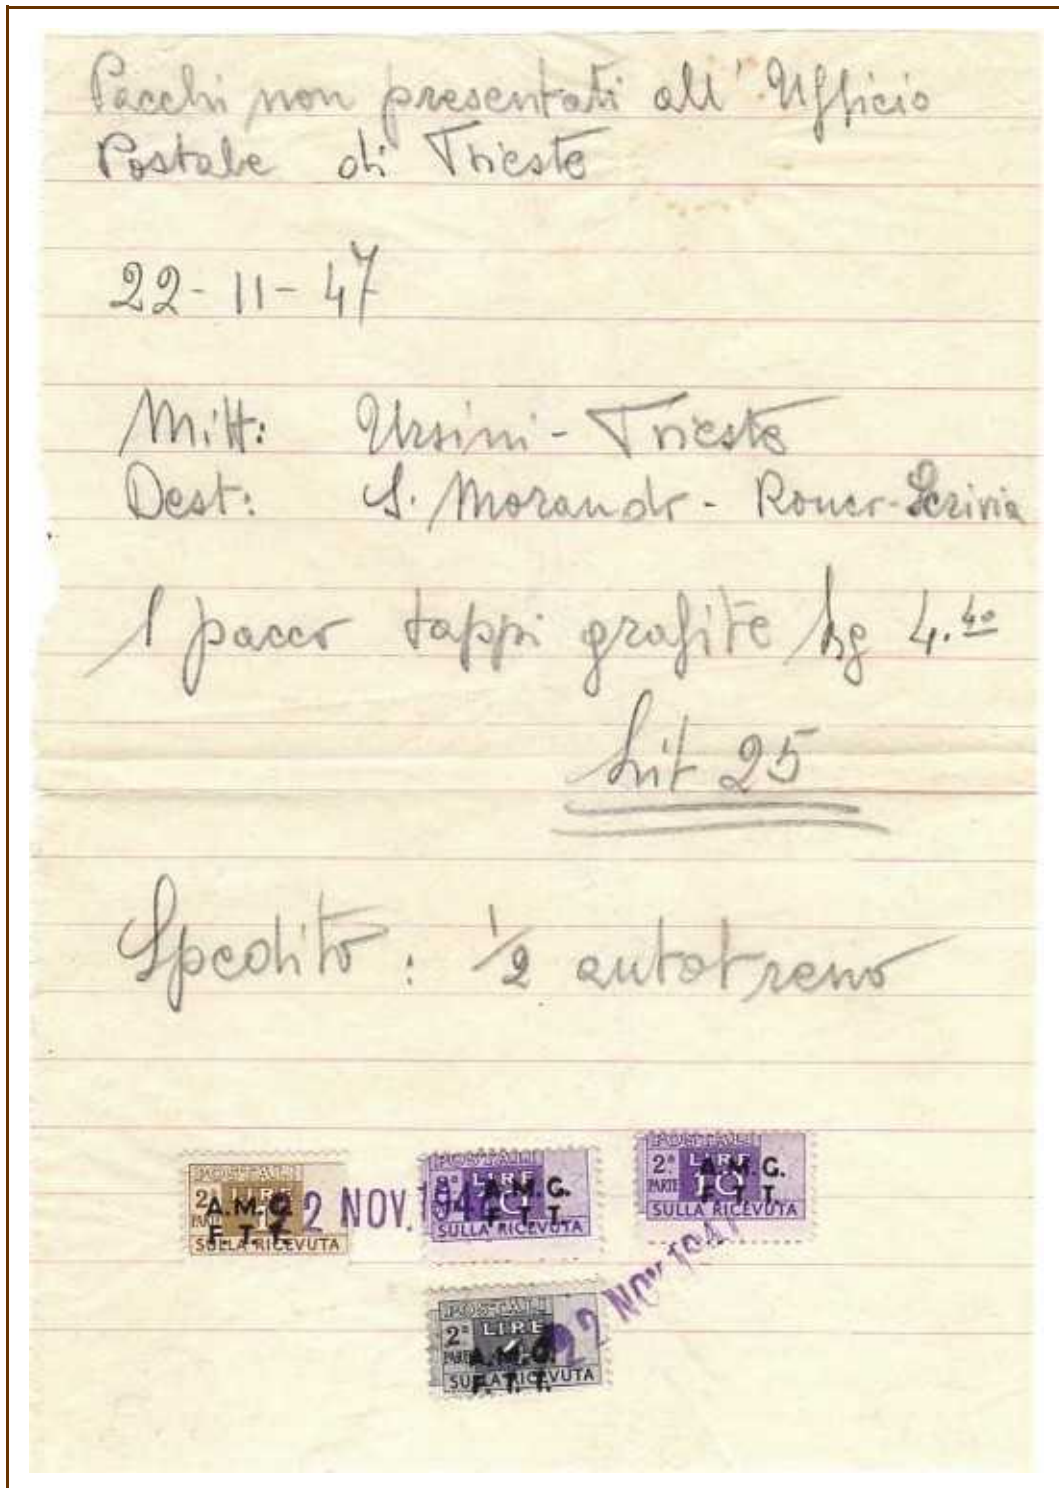 Pacchi non presentati all' Ufficio
Postale di Trieste
22-11-47
Mitt: Ursini - Trieste
Dest: S. Morando - Ronco-Scrivia
1 pacco tappi grafite kg 4.40
Lit 25
Spedito: 1/2 autotreno
POSTALI
2ª PARTE LIRE 1
A.M.G.
F.T.T.
SULLA RICEVUTA
22 NOV. 1947
POSTALI
2ª PARTE LIRE 10
A.M.G.
F.T.T.
SULLA RICEVUTA
POSTALI
2ª PARTE LIRE 10
A.M.G.
F.T.T.
SULLA RICEVUTA
22 NOV. 1947
POSTALI
2ª PARTE LIRE 4
A.M.G.
F.T.T.
SULLA RICEVUTA